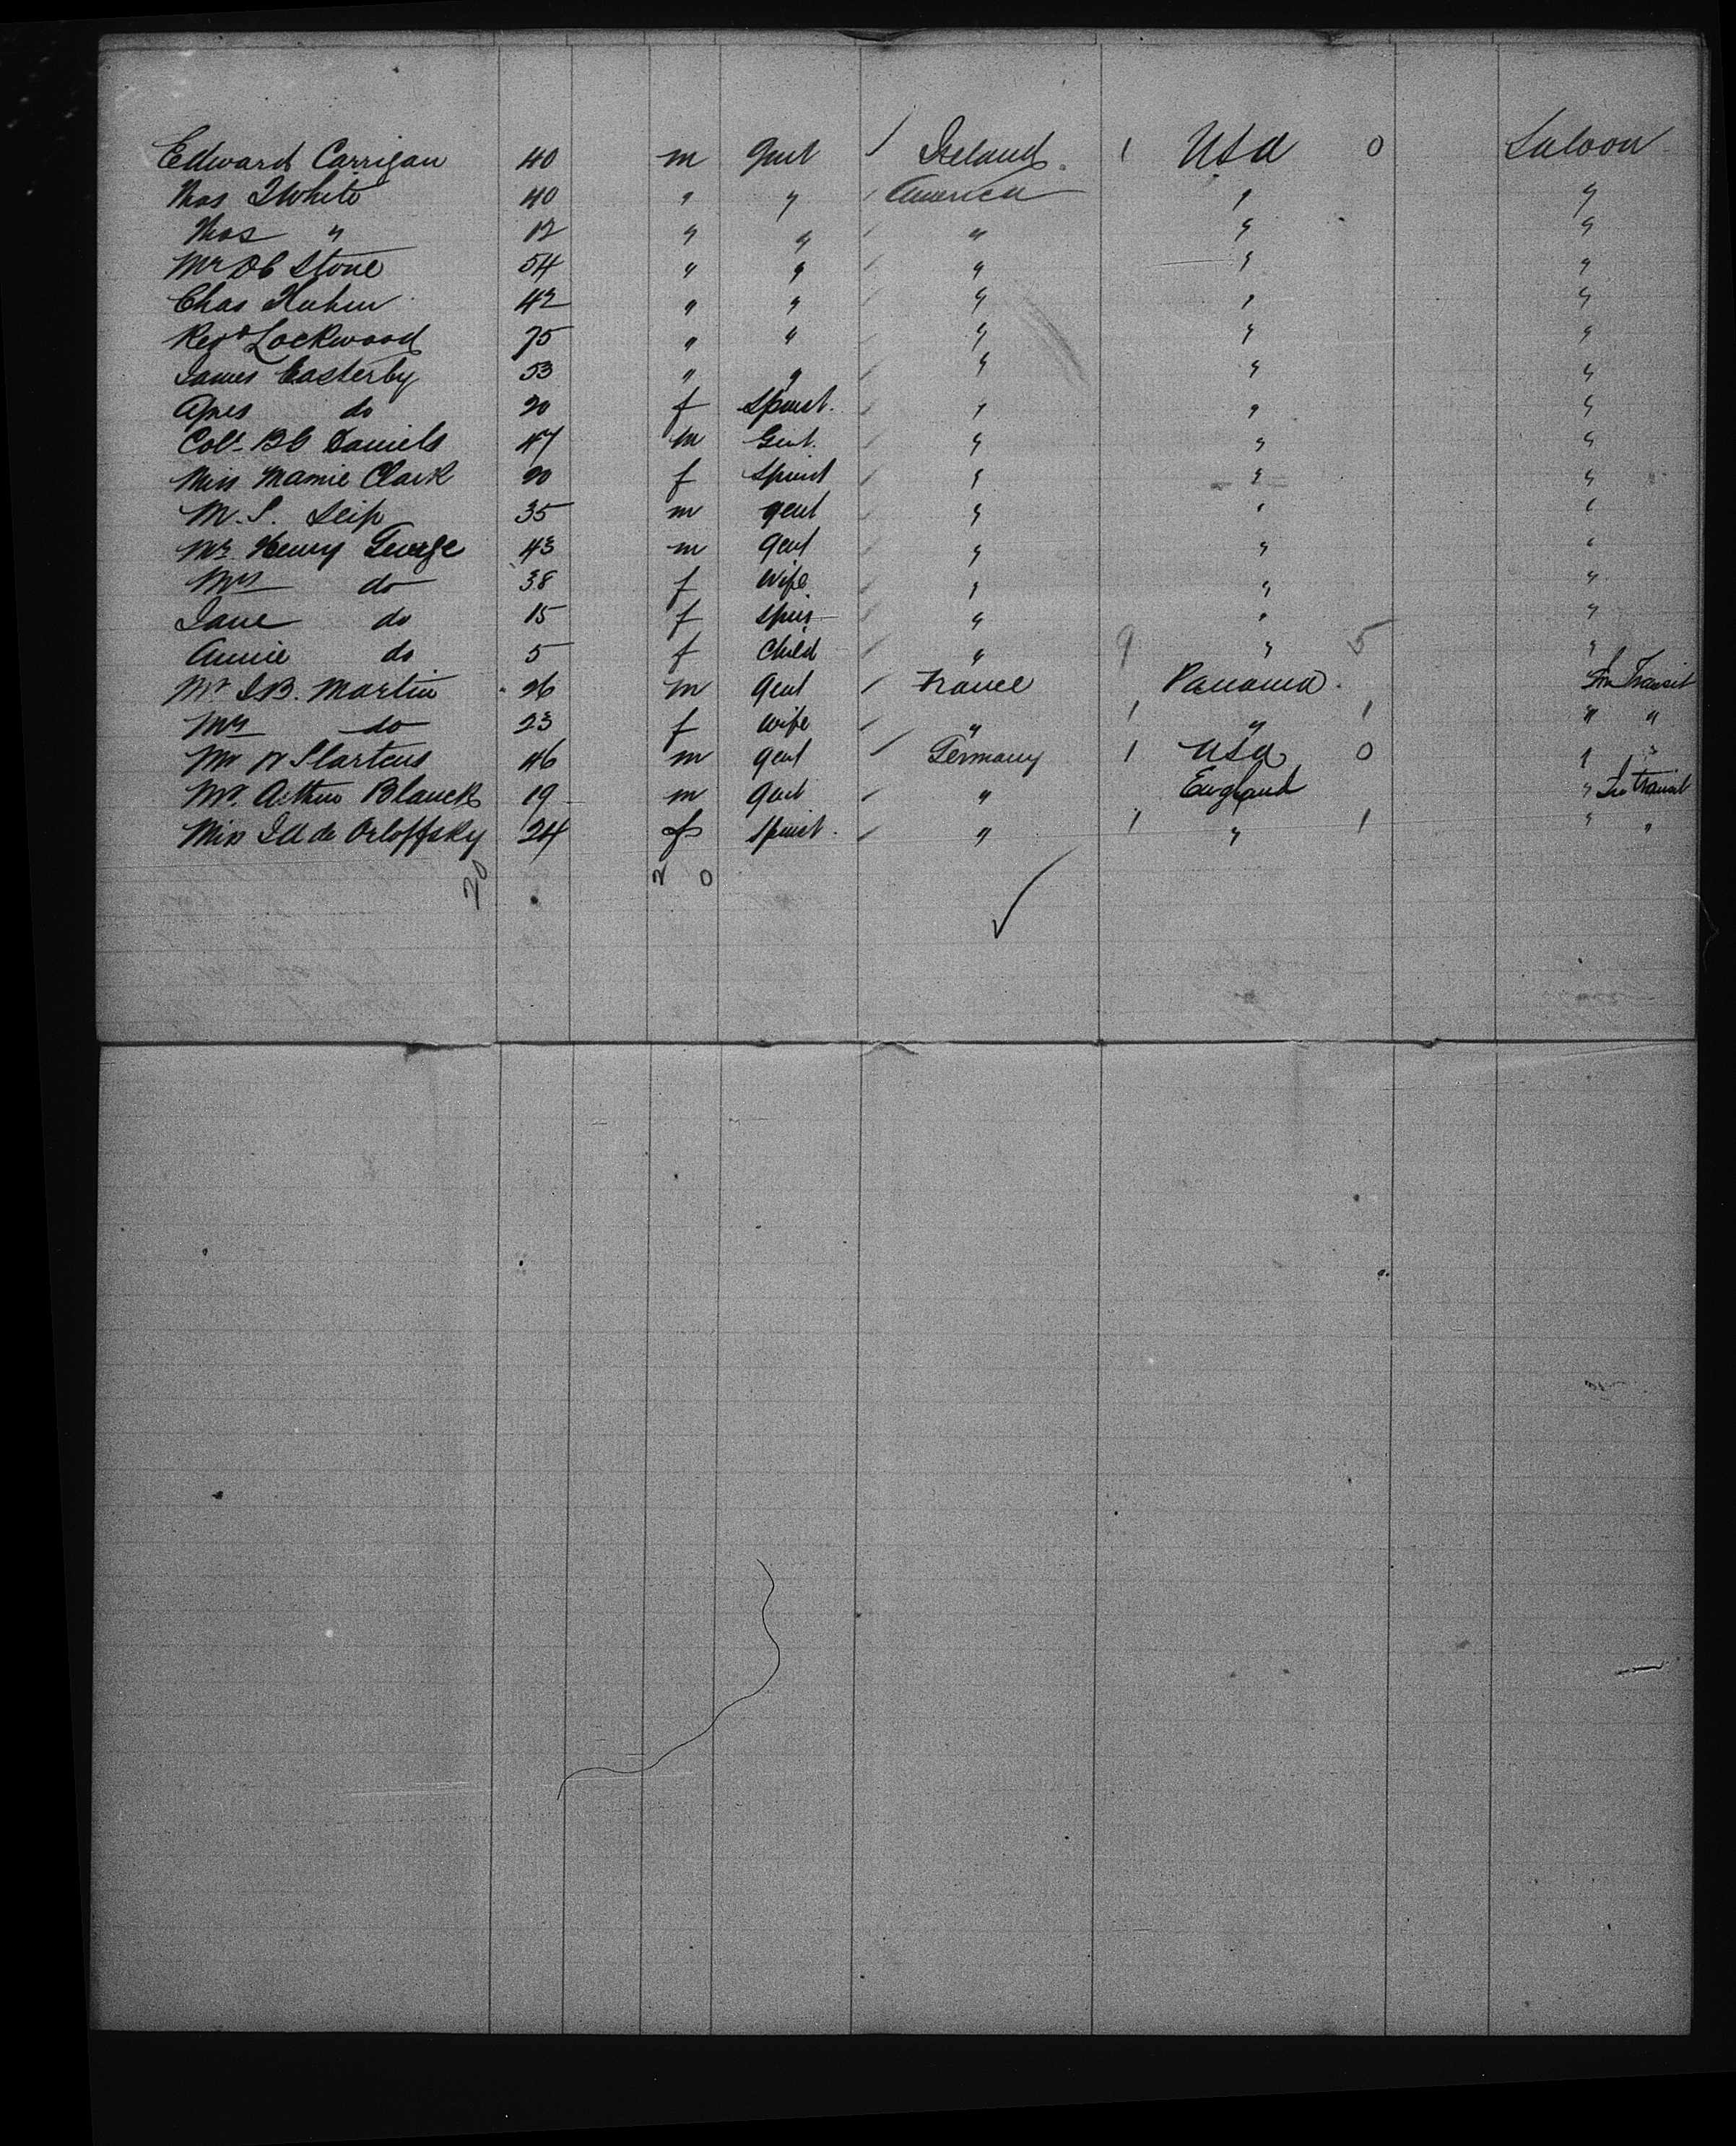 Edward Carrigan 40 m Gent / Ireland 1 USA 0 Saloon
Thos White 40 " " / America " "
Thos " 12 " " / " " "
Mr Stone 54 " " / " " "
Chas 42 " " / " " "
Revd Lockwood 75 " " / " " "
James Easterby 53 " " / " " "
Agnes do 20 f Spinst. / " " "
Col. Daniels 47 m Gent. / " " "
Miss Mamie Clark 20 f Spinst / " " "
M. S. Seip 35 m gent / " " "
Mr Henry George 43 m gent / " " "
Mrs do 38 f Wife / " " "
Jane do 15 f Spins / " " "
Annie do 5 f Child / " 9 " 5 "
Mr J.B. Martin 26 m gent / France Panama In Transit
Mrs do 23 f wife / " 1 " 1 " "
Mr 46 m gent / Germany 1 USA 0 " "
Mr. Arthur Blanck 19 m gent / " England " In transit
Miss Orloffsky 24 f Spinst. / " 1 " 1 " "
20 20